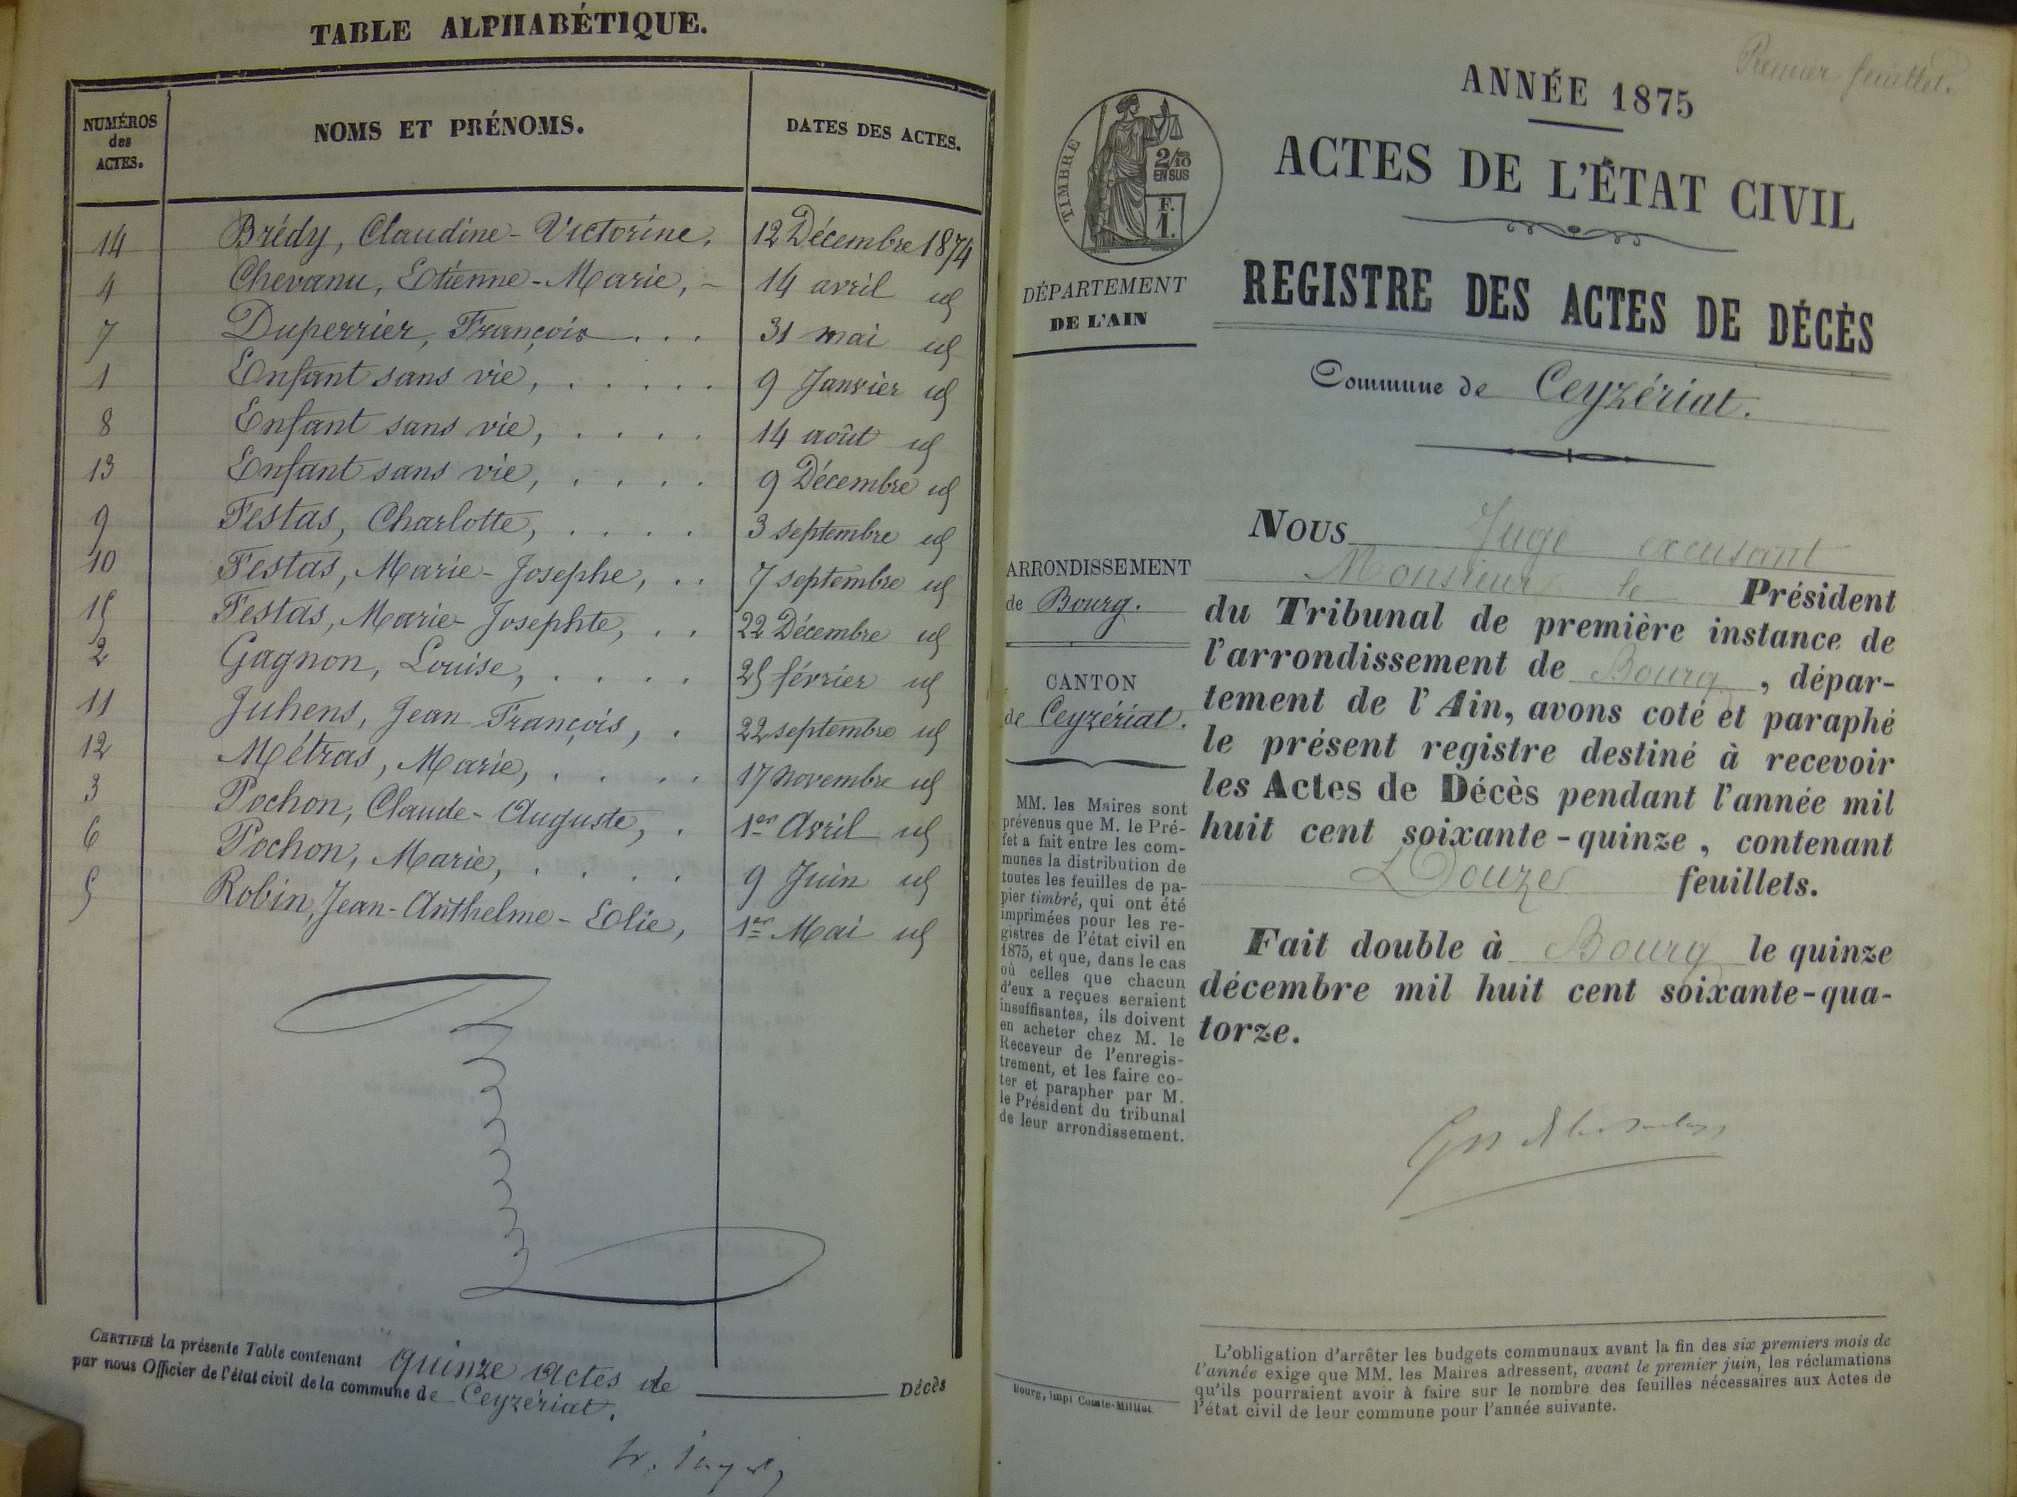 TABLE ALPHABÉTIQUE.
NUMÉROS des ACTES.
NOMS ET PRÉNOMS.
DATES DES ACTES.
14 Brédy, Claudine-Victorine, 12 Décembre 1874
4 Chevanu, Etienne-Marie, - 14 avril id
7 Duperrier, François . . . 31 mai id
1 Enfant sans vie, . . . . . 9 Janvier id
8 Enfant sans vie, . . . . 14 août id
13 Enfant sans vie, . . . . 9 Décembre id
9 Festas, Charlotte, . . . . 3 septembre id
10 Festas, Marie-Josephe, . . 7 septembre id
15 Festas, Marie-Josephte, . . 22 Décembre id
2 Gagnon, Louise, . . . . 25 février id
11 Juhens, Jean François, . 22 septembre id
12 Métras, Marie, . . . . 17 novembre id
3 Pochon, Claude-Auguste, . 1er Avril id
6 Pochon, Marie, . . . . 9 Juin id
5 Robin, Jean-Anthelme-Elie, 1er Mai id
CERTIFIÉ la présente Table contenant quinze actes de Décès
par nous Officier de l'état civil de la commune de Ceyzériat.
Premier feuillet.
ANNÉE 1875
ACTES DE L'ÉTAT CIVIL
REGISTRE DES ACTES DE DÉCÈS
Commune de Ceyzériat.
TIMBRE
2/10
EN SUS
F.
1.
DÉPARTEMENT
DE L'AIN
ARRONDISSEMENT
de Bourg.
CANTON
de Ceyzériat.
MM. les Maires sont
prévenus que M. le Pré-
fet a fait entre les com-
munes la distribution de
toutes les feuilles de pa-
pier timbré, qui ont été
imprimées pour les re-
gistres de l'état civil en
1875, et que, dans le cas
où celles que chacun
d'eux a reçues seraient
insuffisantes, ils doivent
en acheter chez M. le
Receveur de l'enregis-
trement, et les faire co-
ter et parapher par M.
le Président du tribunal
de leur arrondissement.
Bourg, impi Comte-Milliet
NOUS Juge excusant
Monsieur le Président
du Tribunal de première instance de
l'arrondissement de Bourg, dépar-
tement de l'Ain, avons coté et paraphé
le présent registre destiné à recevoir
les Actes de Décès pendant l'année mil
huit cent soixante-quinze, contenant
Douze feuillets.
Fait double à Bourg le quinze
décembre mil huit cent soixante-qua-
torze.
L'obligation d'arrêter les budgets communaux avant la fin des six premiers mois de
l'année exige que MM. les Maires adressent, avant le premier juin, les réclamations
qu'ils pourraient avoir à faire sur le nombre des feuilles nécessaires aux Actes de
l'état civil de leur commune pour l'année suivante.